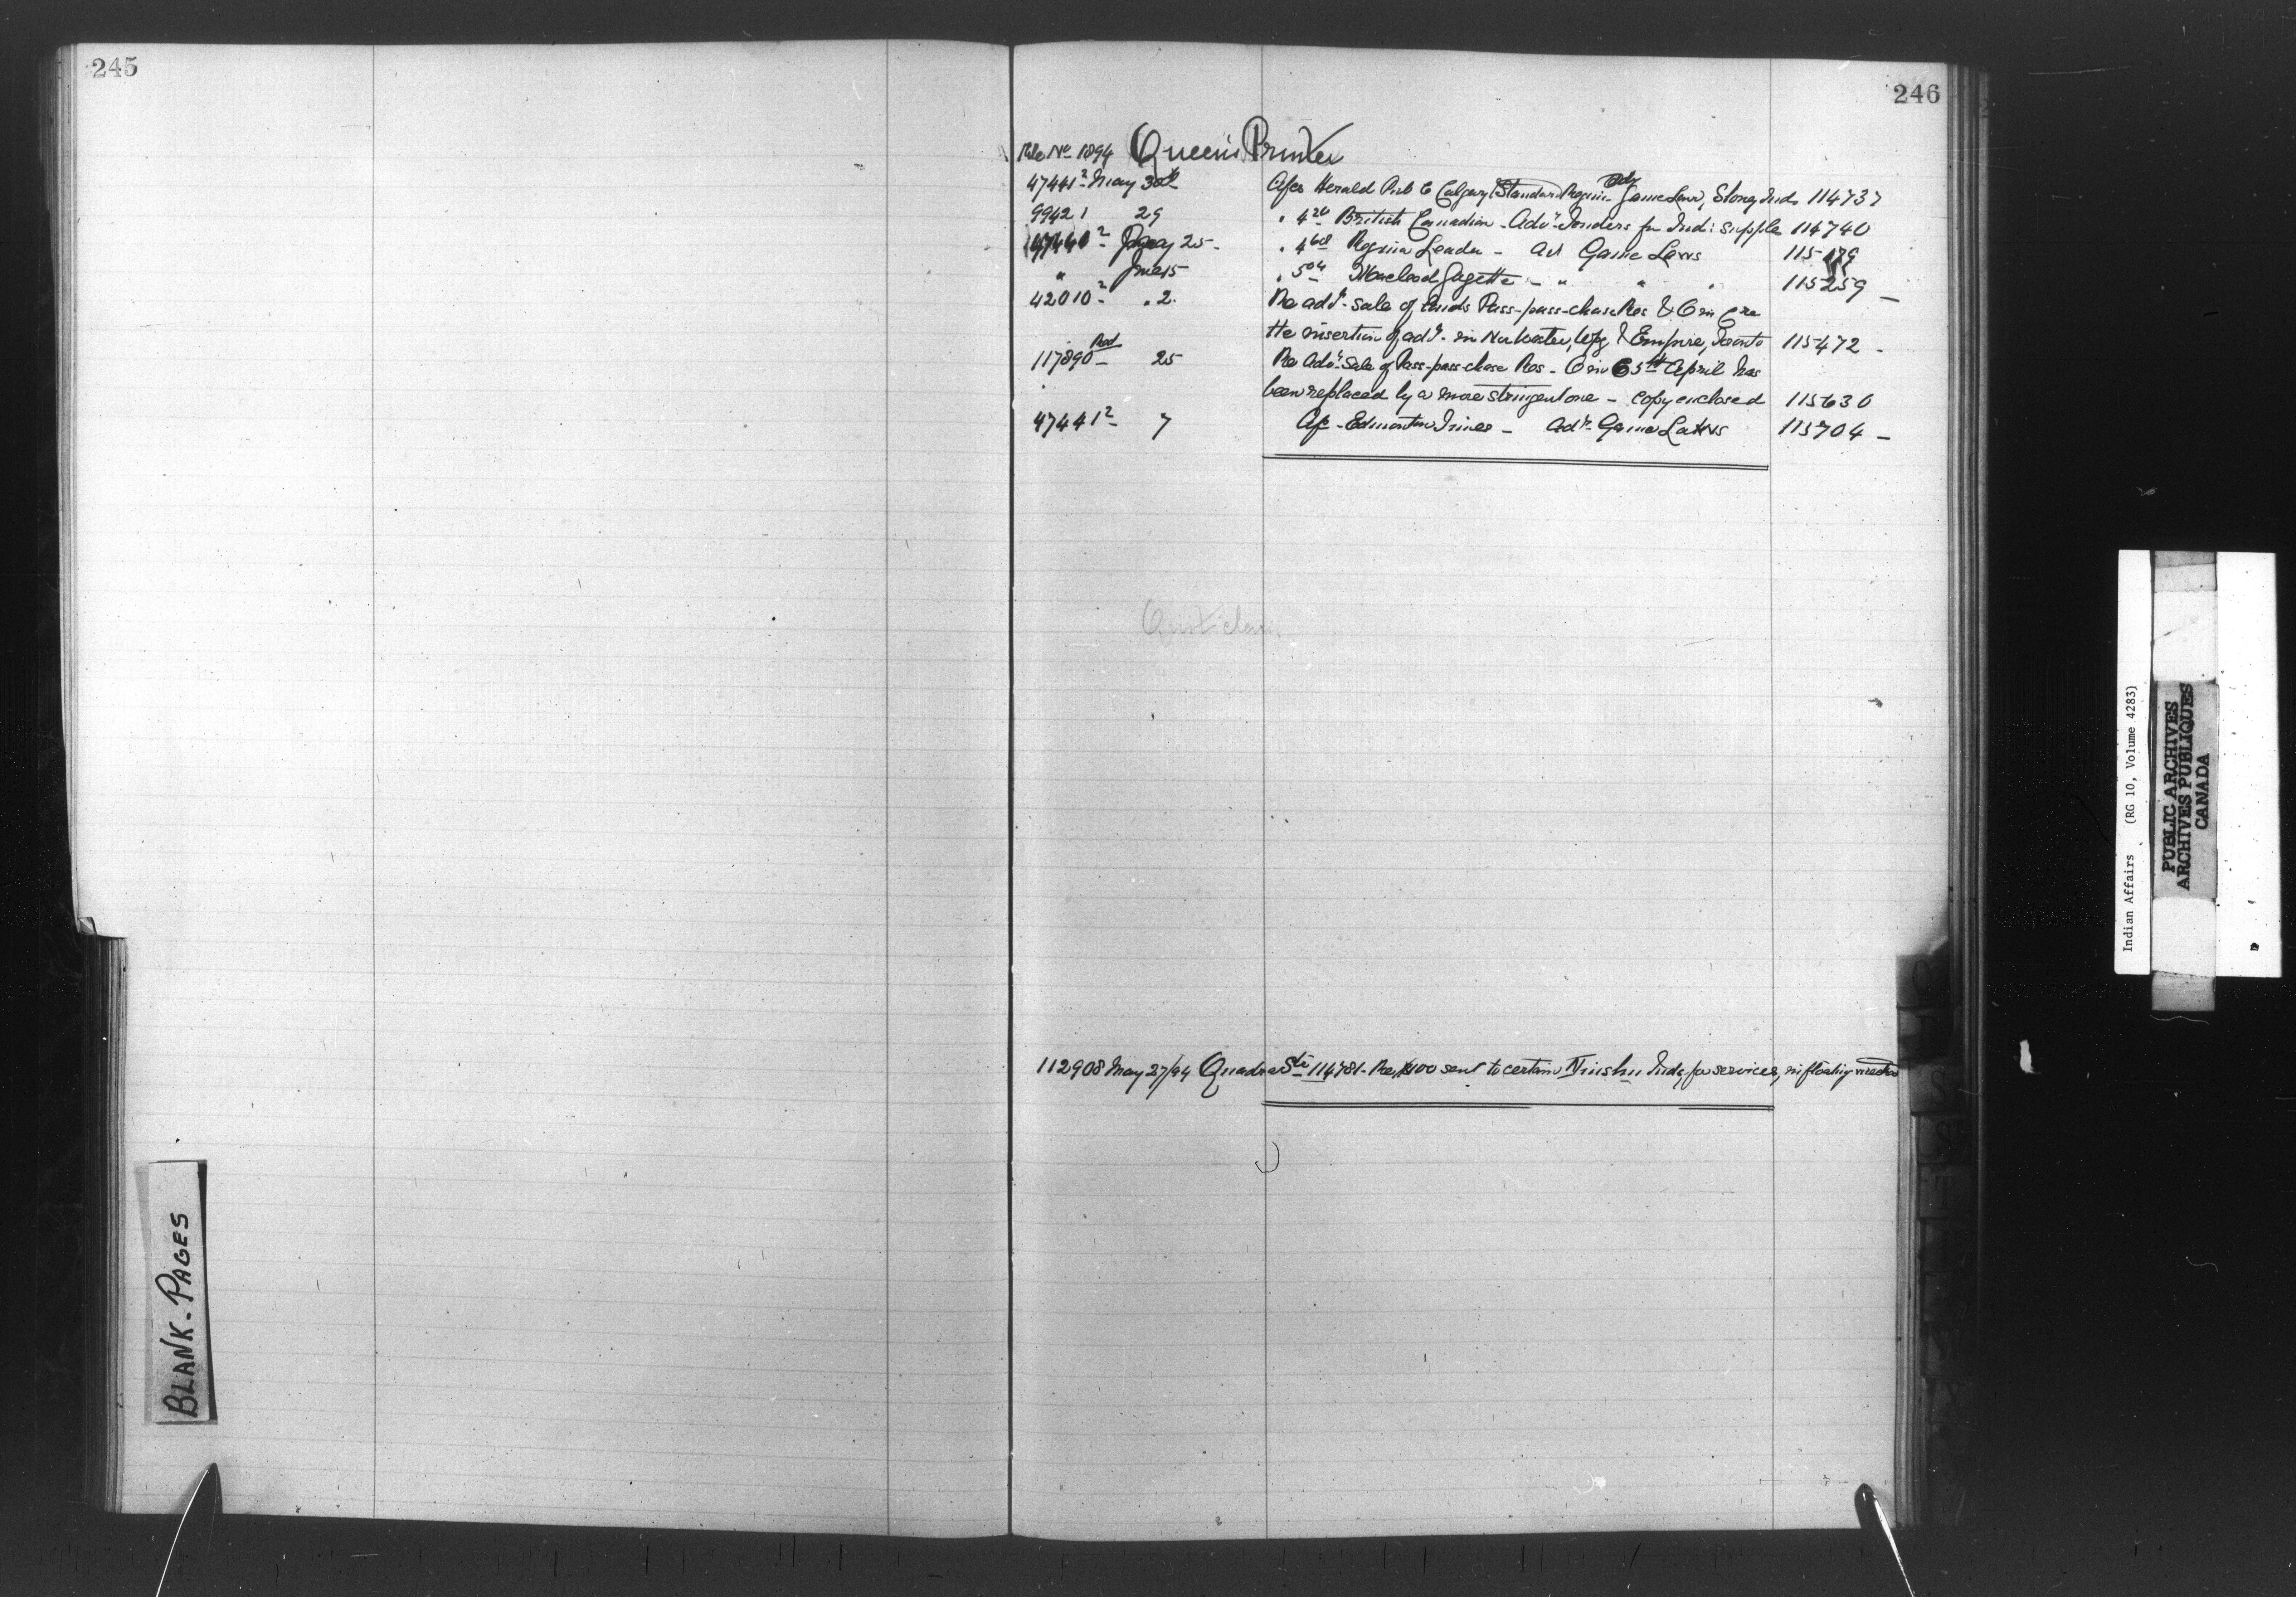 245
246
File No 1894 Queen's Printer
47441² May 30th Afcs Herald Pub Co Calgary (Standard Regina Adv Game Law, Stony Inds 114737
99421 29 " 4 20 British Canadian - Advt Tenders for Ind: Supplie 114740
47440² May 25 - " 4 68 Regina Leader - Ad Game Laws 115179
" June 15 " 5 04 Macleod Gazette - " " " 115259 -
42010² " 2. Re advt. sale of lands Pass-pass-chase Res & O in C re
the insertion of advt. in Nor Wester, Wpg & Empire, Toronto 115472 -
117890 Red 25 Re Advt. Sale of Pass-pass-chase Res - O in C 5th April has
been replaced by a more stringent one - copy enclosed 115630
47441² 7 Afc - Edmonton Times - Advt. Game Laws 115704 -
Quit claim
112908 May 27/94 Quadra Str 114781 - Re $100 sent to certain Inds for services, in floating
BLANK-PAGES
Indian Affairs (RG 10, Volume 4283)
PUBLIC ARCHIVES
ARCHIVES PUBLIQUES
CANADA